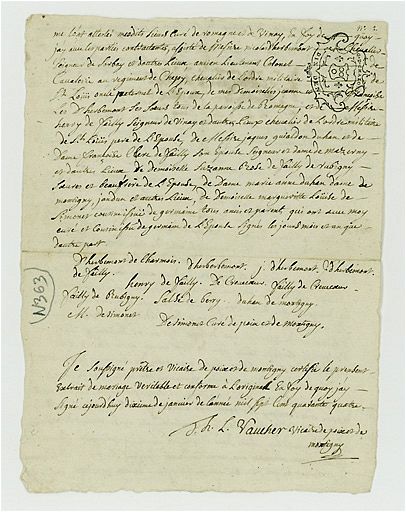 me l'ont attestés messire Curé de romagne et de Vinay, En foy de quoy
jay que les parties contractantes, assistés de Messire nicolas d'herbemont Chevalier
Seigneur de et d'autres Lieux, ancien Lieutenant Colonel de
Cavalerie au regiment de chevalier de Lordre militaire de
St Loüis oncle paternel de L'Epoux, de Demoiselles jeanne
Les D'herbemont Ses Sœurs tous de la paroisse de Romagne; et de Messire
henry de Vailly Seigneur de Vinay et d'autres Lieux chevalier de Lordre militaire
de St Loüis pere de L'Epouse, de Messire jaques duhan, et de
Dame francoise Claire de Vailly Son Epouse Seigneur et dame de
et d'autres Lieux, de Demoiselle Suzanne Rose de Vailly de
Sœurs et beau frere de L'Epouse, de Dame marie anne duhan dame de
montigny, jandun et autres Lieux, de Demoiselle marguerite Louise de
Simonet cousine issüe de germaine tous amis et parents, qui ont avec moy
curé et Cousin issu de germain de L'Epouse Signés les jours mois et an que
d'autre part
D'herbemont de Charmois. d'herbemont. j. d'herbemont. d'herbemont.
de Vailly. henry de Vailly. De Creuecœur. Vailly de Creuecœur.
Vailly de Rubigny. duhan de montigny.
M. de Simonet
De Simonet Curé de poix et de montigny.
Je Soussigné prêtre et Vicaire de poix et de montigny certifie le present
Extrait de mariage Veritable et conforme à Loriginal En foy de quoy jay
Signé cejourdhuy dixieme de janvier de lannée mil Sept Cent quarante quatre.
J. h. L. Vaucher Vicaire de poix et de
montigny
N363